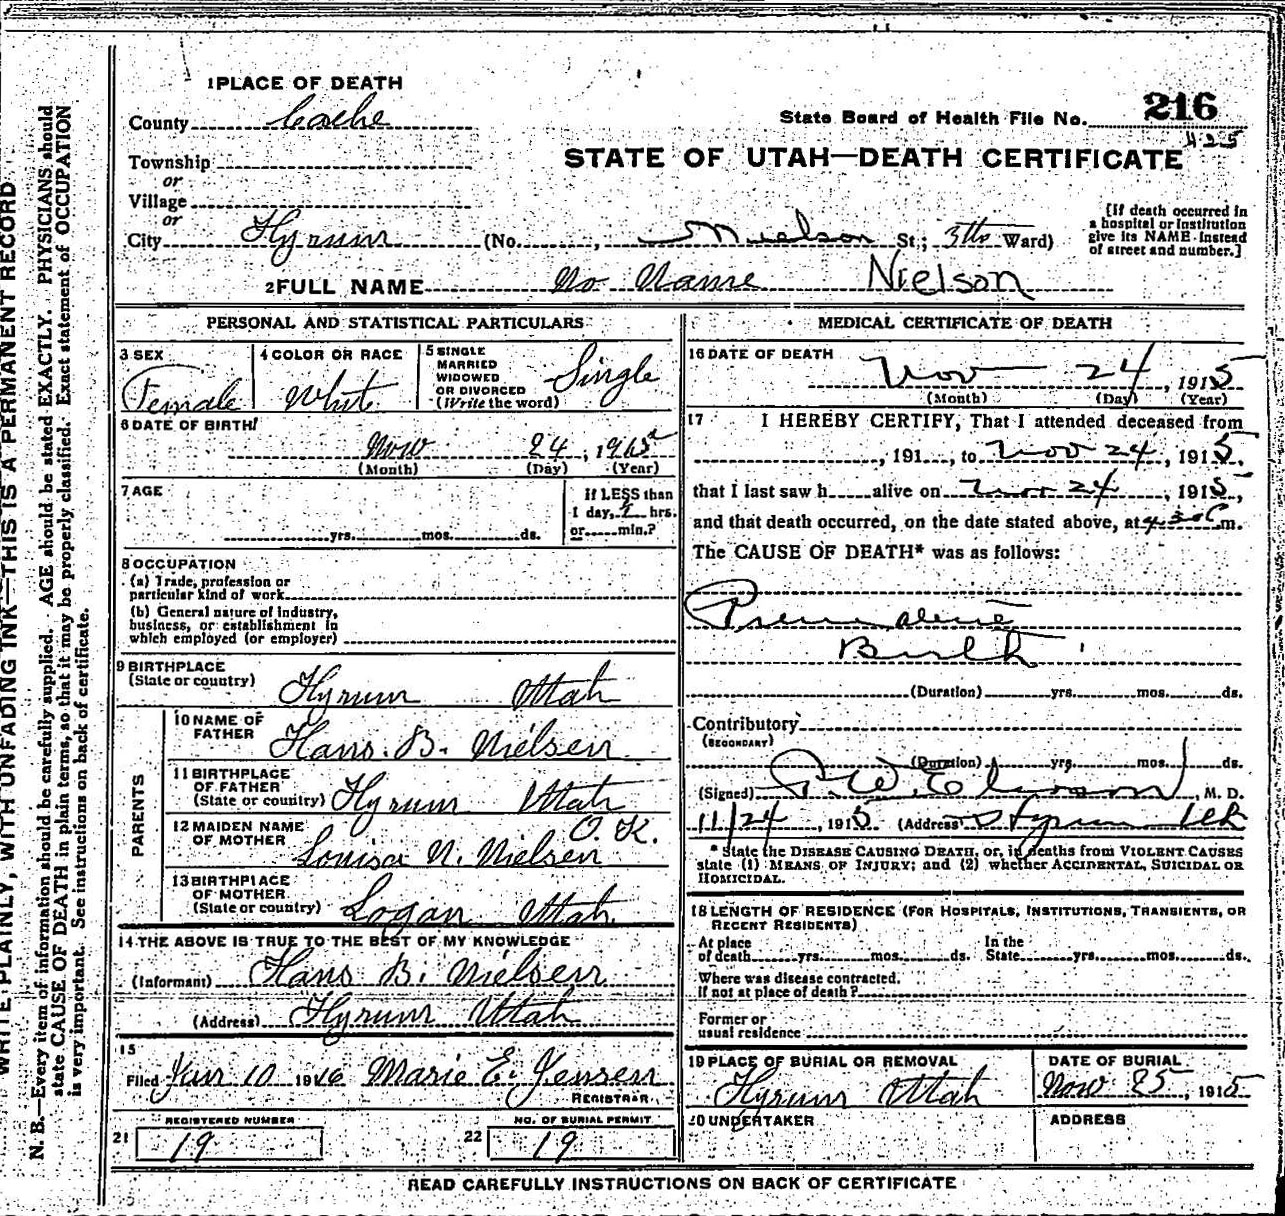 WRITE PLAINLY, WITH UNFADING INK—THIS IS A PERMANENT RECORD
N. B.—Every item of information should be carefully supplied. AGE should be stated EXACTLY. PHYSICIANS should
state CAUSE OF DEATH in plain terms, so that it may be properly classified. Exact statement of OCCUPATION
is very important. See instructions on back of certificate.
1 PLACE OF DEATH
County Cache
State Board of Health File No. 216
425
STATE OF UTAH—DEATH CERTIFICATE
Township
or
Village
or
City Hyrum (No. , Nielson St.; 3th Ward)
[If death occurred in
a hospital or institution
give its NAME instead
of street and number.]
2 FULL NAME No Name Nielson
PERSONAL AND STATISTICAL PARTICULARS
3 SEX
Female
4 COLOR OR RACE
White
5 SINGLE
MARRIED
WIDOWED
OR DIVORCED
(Write the word)
Single
6 DATE OF BIRTH
Nov 24, 1915
(Month) (Day) (Year)
7 AGE
yrs. mos. ds.
If LESS than
1 day, hrs.
or min.?
8 OCCUPATION
(a) Trade, profession or
particular kind of work
(b) General nature of industry,
business, or establishment in
which employed (or employer)
9 BIRTHPLACE
(State or country) Hyrum Utah
PARENTS
10 NAME OF
FATHER Hans. B. Nielsen
11 BIRTHPLACE
OF FATHER
(State or country) Hyrum Utah
12 MAIDEN NAME
OF MOTHER O.K.
Louisa N. Nielsen
13 BIRTHPLACE
OF MOTHER
(State or country) Logan Utah
14 THE ABOVE IS TRUE TO THE BEST OF MY KNOWLEDGE
(Informant) Hans B. Nielsen
(Address) Hyrum Utah
15
Filed Jan 10 1916 Marie E. Jensen
REGISTRAR
REGISTERED NUMBER
21 19
NO. OF BURIAL PERMIT
22 19
MEDICAL CERTIFICATE OF DEATH
16 DATE OF DEATH
Nov 24, 1915
(Month) (Day) (Year)
17 I HEREBY CERTIFY, That I attended deceased from
, 191 , to Nov 24, 1915,
that I last saw h alive on Nov 24, 1915,
and that death occurred, on the date stated above, at m.
The CAUSE OF DEATH* was as follows:
Premature
Birth
(Duration) yrs. mos. ds.
Contributory
(SECONDARY)
(Duration) yrs. mos. ds.
(Signed) , M. D.
11/24, 1915 (Address) Hyrum
* State the DISEASE CAUSING DEATH, or, in deaths from VIOLENT CAUSES
state (1) MEANS OF INJURY; and (2) whether ACCIDENTAL, SUICIDAL OR
HOMICIDAL.
18 LENGTH OF RESIDENCE (FOR HOSPITALS, INSTITUTIONS, TRANSIENTS, OR
RECENT RESIDENTS)
At place
of death yrs. mos. ds.
In the
State yrs. mos. ds.
Where was disease contracted.
If not at place of death?
Former or
usual residence
19 PLACE OF BURIAL OR REMOVAL
Hyrum Utah
DATE OF BURIAL
Nov 25, 1915
20 UNDERTAKER
ADDRESS
READ CAREFULLY INSTRUCTIONS ON BACK OF CERTIFICATE